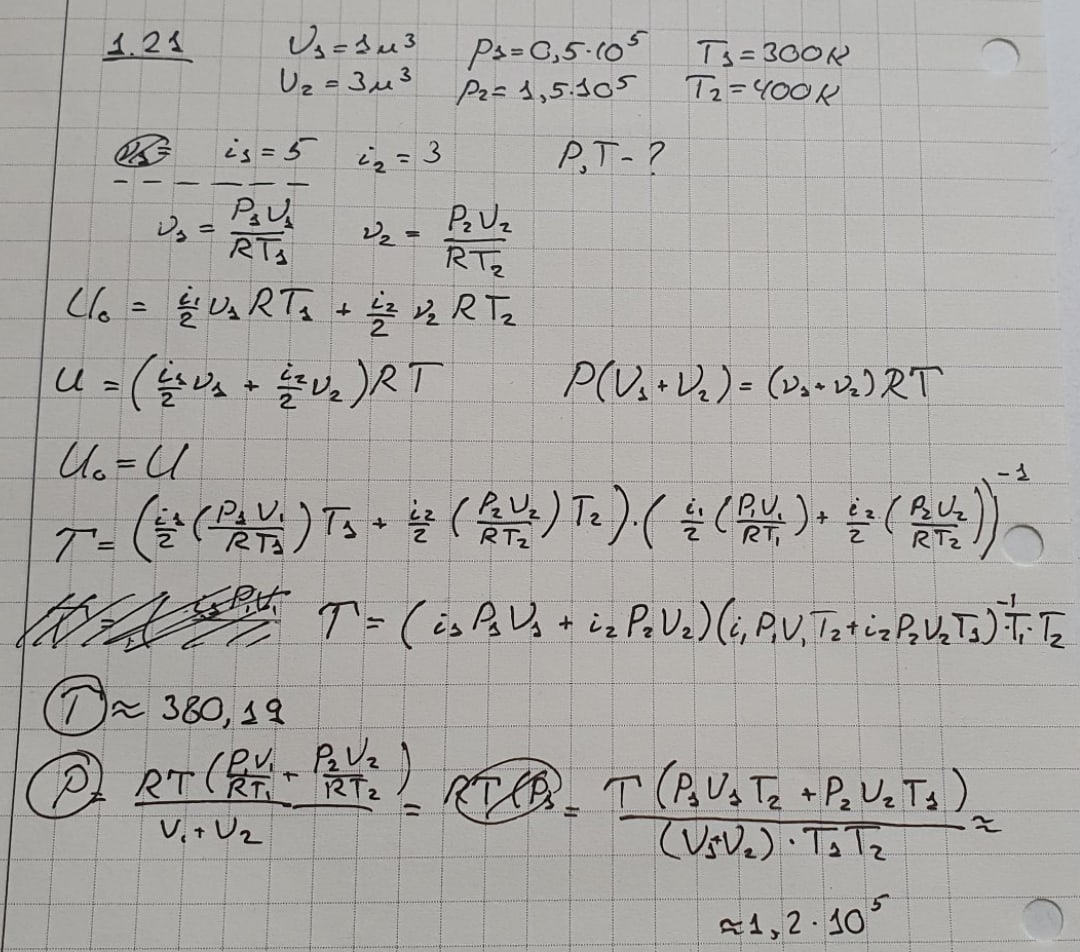 1.21 V₁=1м³ P₁=0,5·10⁵ T₁=300К
V₂=3м³ P₂=1,5·10⁵ T₂=400К
i₁=5 i₂=3 P,T-?
ν₁ = P₁V₁/RT₁ ν₂ = P₂V₂/RT₂
U₀ = i₁/2 ν₁RT₁ + i₂/2 ν₂RT₂
U = (i₁/2 ν₁ + i₂/2 ν₂)RT P(V₁+V₂)=(ν₁+ν₂)RT
U₀=U
T=(i₁/2 (P₁V₁/RT₁)T₁ + i₂/2 (P₂V₂/RT₂)T₂)·(i₁/2 (P₁V₁/RT₁) + i₂/2 (P₂V₂/RT₂))⁻¹
T=(i₁P₁V₁ + i₂P₂V₂)(i₁P₁V₁T₂+i₂P₂V₂T₁)⁻¹·T₁·T₂
T≈380,19
P= RT(P₁V₁/RT₁ + P₂V₂/RT₂)/V₁+V₂ = RT(P₁ = T(P₁V₁T₂+P₂V₂T₁)/(V₁+V₂)·T₁T₂ ≈
≈1,2·10⁵